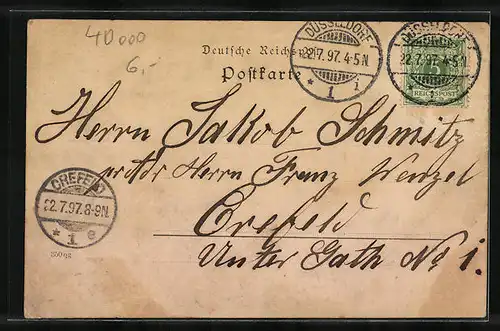 40000
6,-
Deutsche Reichspost
Postkarte
DÜSSELDORF
22.7.97.4-5N.
* 1 i
DÜSSELDORF
22.7.97.4-5N.
* 1 i
REICHSPOST
Herrn Jakob Schmitz
Herrn Franz Wenzel
Crefeld
Unter Gath No 1.
CREFELD
22.7.97.8-9N.
* 1 e